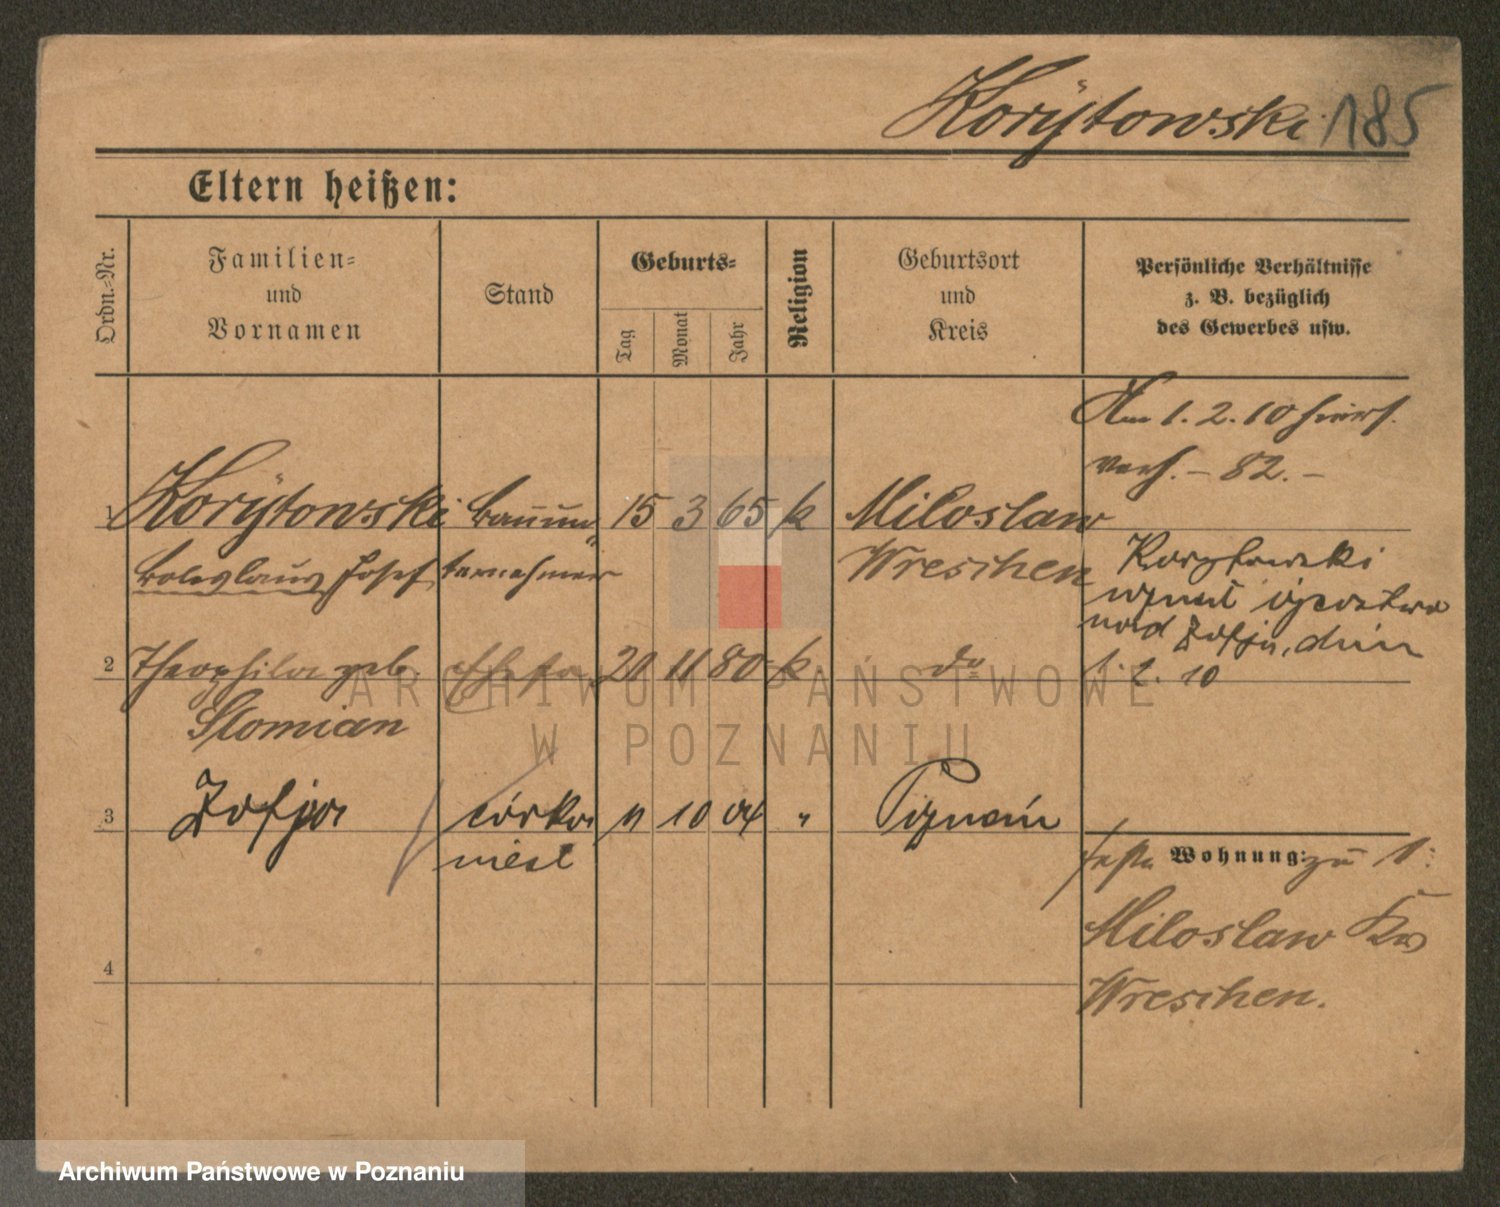 Korytowski 185
Eltern heißen:
Ordn.-Nr.
Familien-
und
Vornamen
Stand
Geburts-
Tag
Monat
Jahr
Religion
Geburtsort
und
Kreis
Persönliche Verhältnisse
z. B. bezüglich
des Gewerbes usw.
Am 1. 2. 10
– 82. –
1 Korytowski Bauun- 15 3 65 k Miloslaw
Boleslaus Josef ternehmer Wreschen
Korytowski
uznał ojcostwo
nad Zofją, dnia
1. 2. 10
2 Theophila geb. Ehefr. 20 11 80 k do
Slomian
3 Zofja córka 11 10 04 " Poznań
nieśl
feste Wohnung: zu 1:
Miloslaw Krs
Wreschen.
4
ARCHIWUM PAŃSTWOWE
W POZNANIU
Archiwum Państwowe w Poznaniu